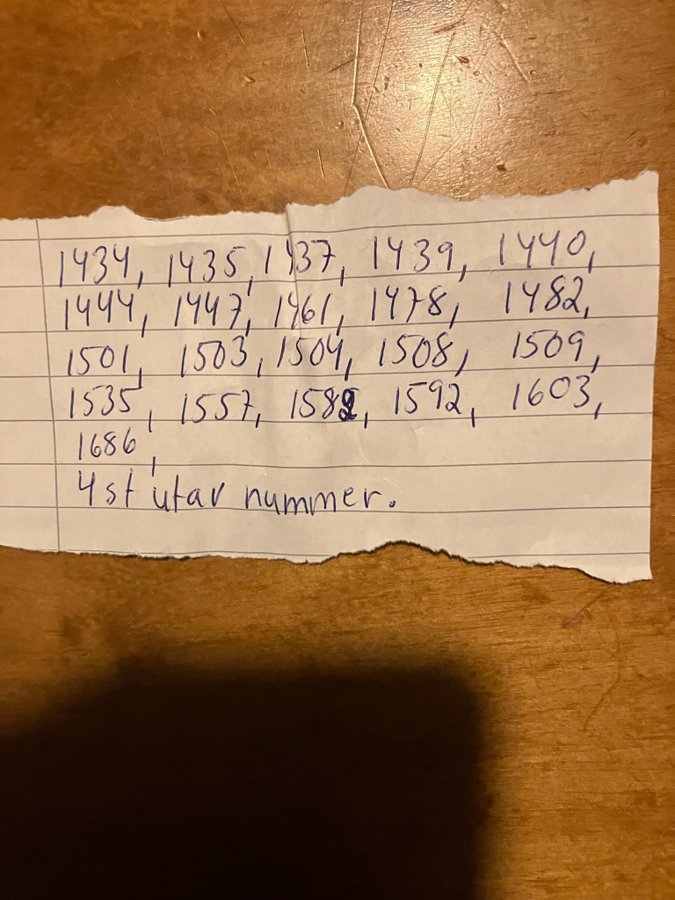 1434, 1435, 1437, 1439, 1440,
1444, 1447, 1461, 1478, 1482,
1501, 1503, 1504, 1508, 1509,
1535, 1557, 1582, 1592, 1603,
1686,
4 st utav nummer.